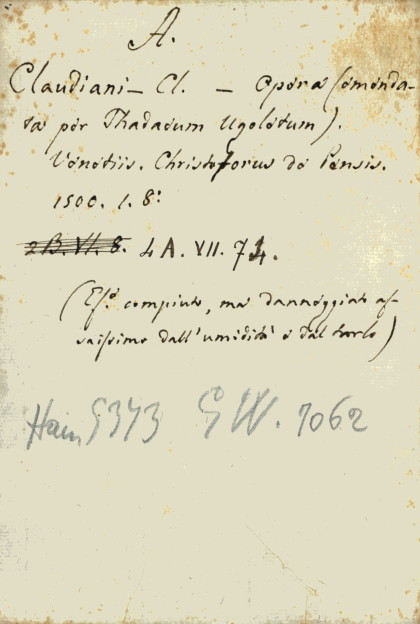 A.
Claudiani - Cl. - Opera (emenda-
ta per Thadaeum Ugoletum).
Venetiis. Christoforus de Pensis.
1500. 1. 8º
2B. VI. 8. 4A. VII. 74.
(Es.º compiuto, ma danneggiato as-
saissimo dall'umidità e dal tarlo)
Hain 5373 GW. 7062